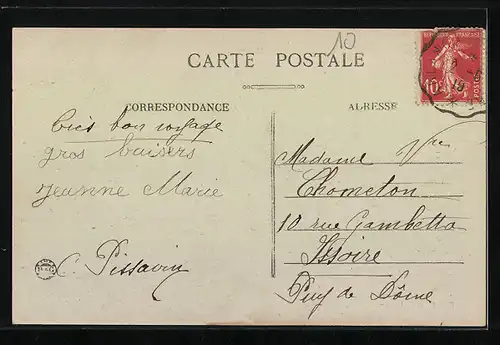 10
CARTE POSTALE
REPUBLIQUE FRANÇAISE
10
POSTES
CORRESPONDANCE
ADRESSE
très bon voyage
gros baisers
Jeanne Marie
C. Pissavin
Madame Vve
Chometon
10 rue Gambetta
Issoire
Puy de Dôme